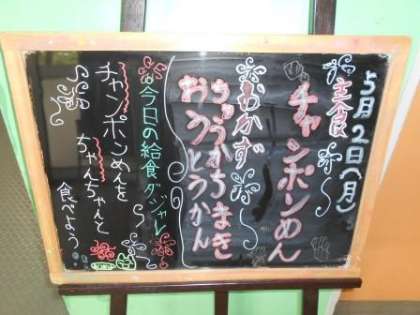 5月2日(月)
主食
チャンポンめん
おかず
ちゅうかちまき
おうとうかん
今日の給食ダジャレ
チャンポンめんを
ちゃんちゃんと
食べよう